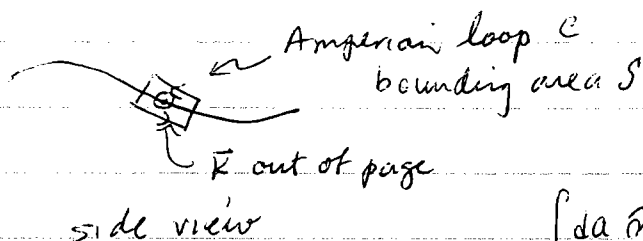 Amperian loop C
bounding area S
K⃗ out of page
side view
∫da n̂